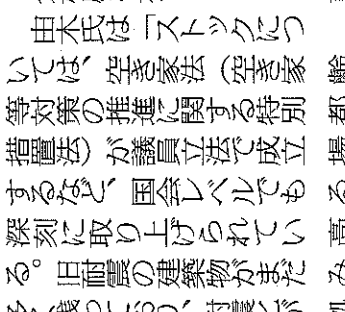 由木氏は「ストックにつ
いては、空き家法（空き家
等対策の推進に関する特別
措置法）が議員立法で成立
するなど、国会レベルでも
深刻に取り上げられてい
る。旧耐震の建築物がまだ
齢
都
場
る
高
み